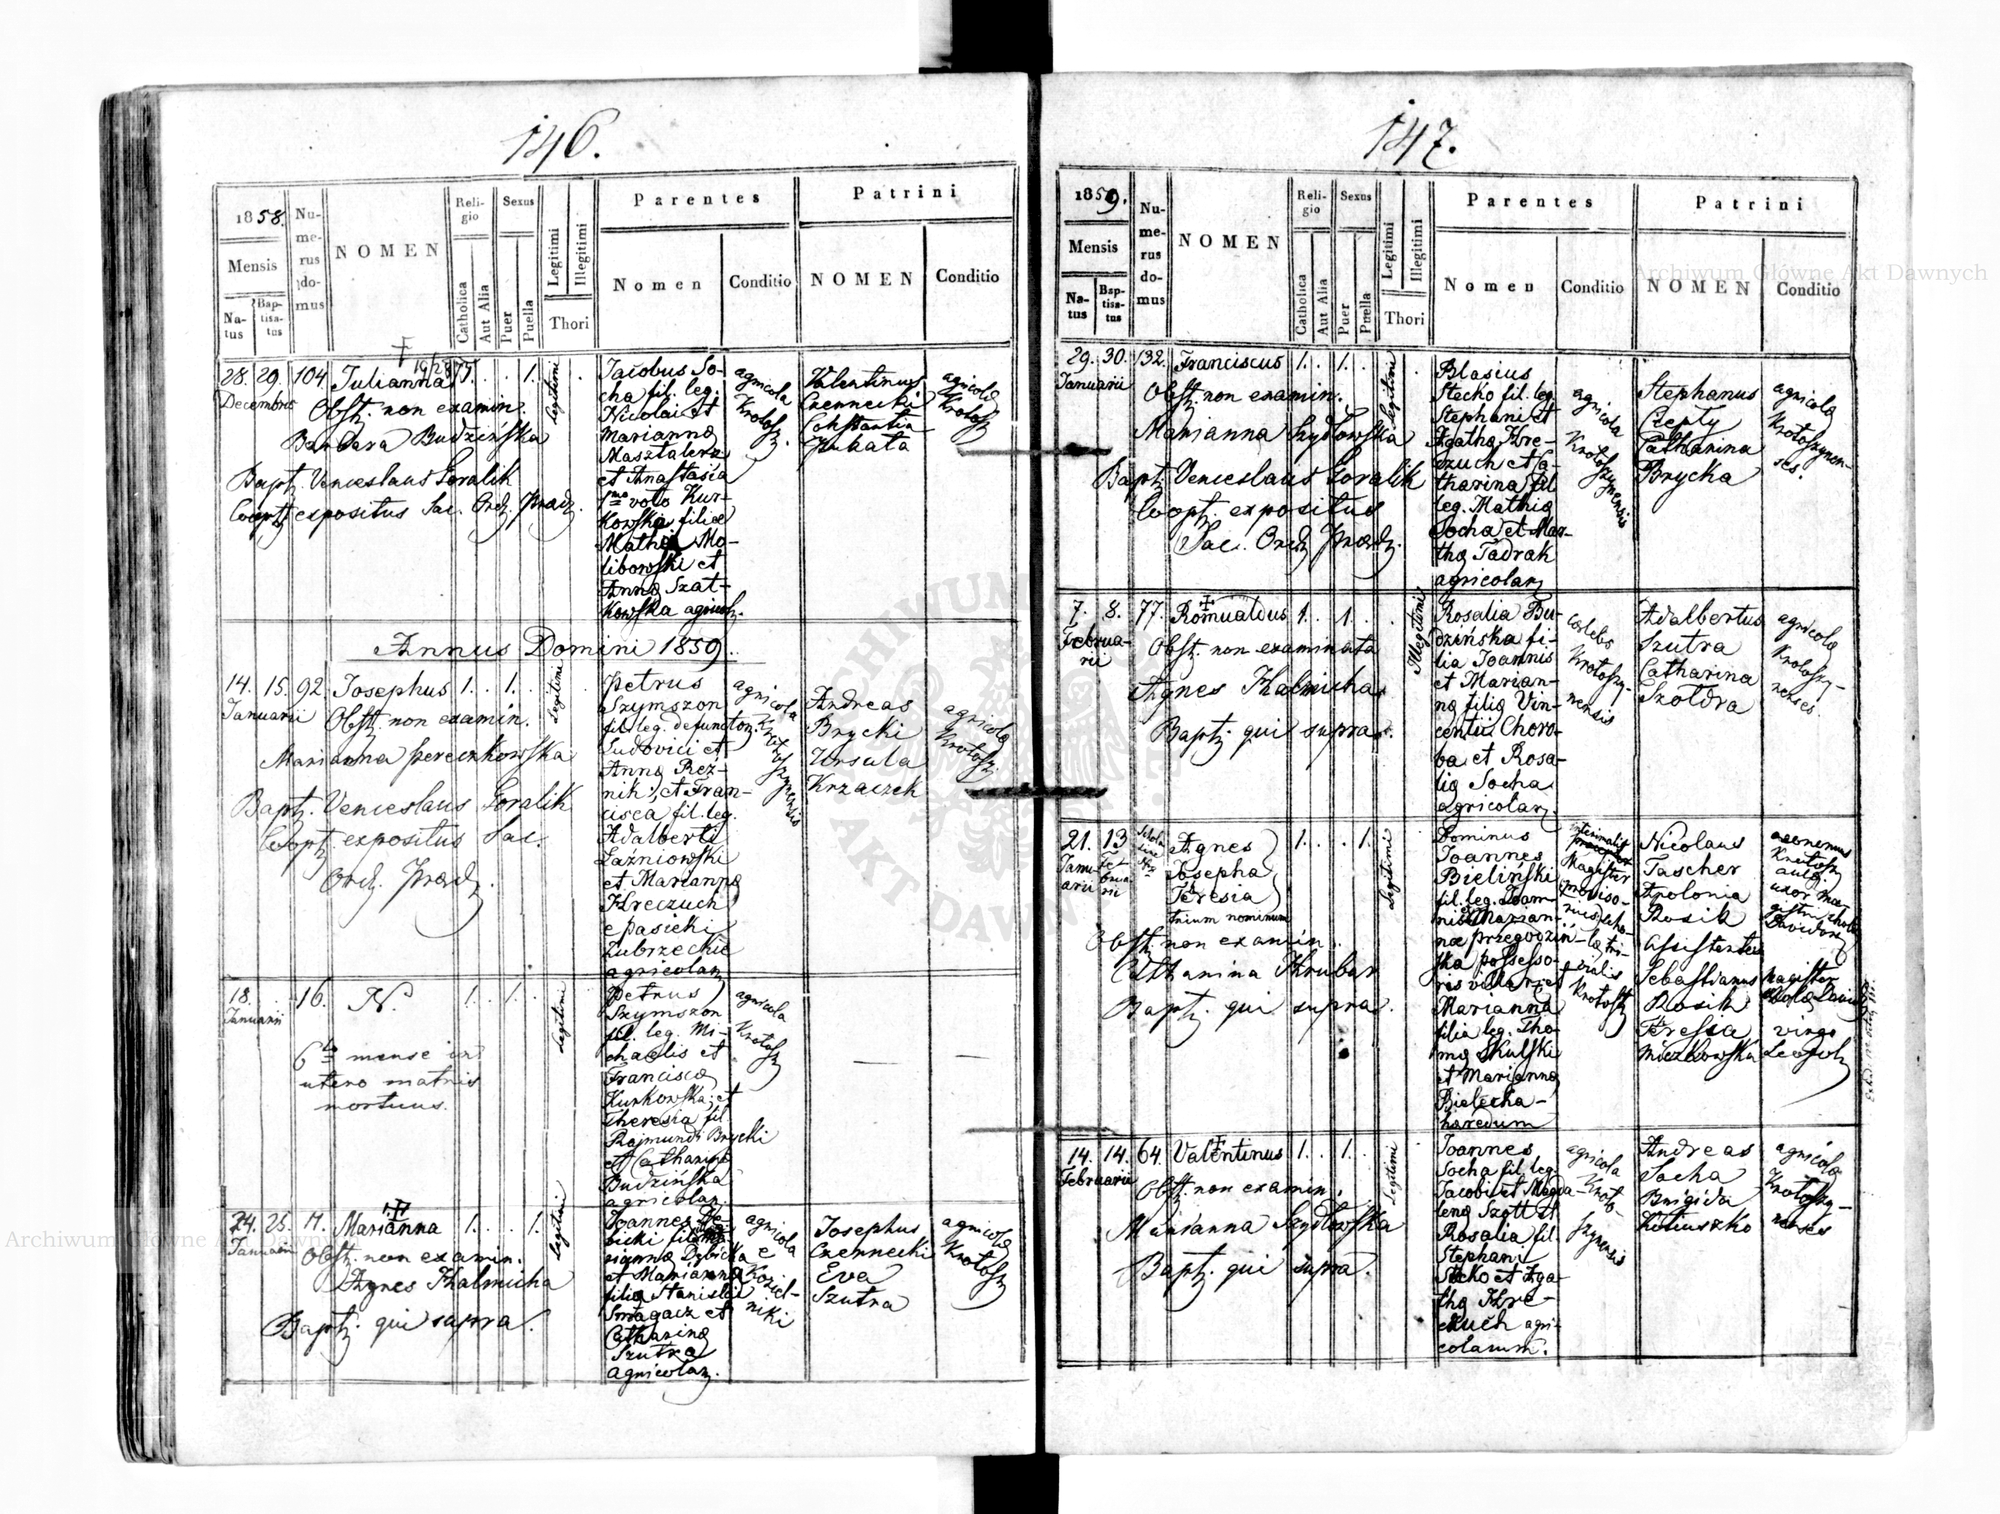 146.
1858.
Mensis
Na-
tus
Bap-
tisa-
tus
Nu-
me-
rus
do-
mus
NOMEN
Reli-
gio
Catholica
Aut Alia
Sexus
Puer
Puella
Legitimi
Illegitimi
Thori
Parentes
Nomen
Conditio
Patrini
NOMEN
Conditio
28. 29. 104. Julianna 1. . . 1.
Decembris
Obst. non examin.
Barbara Budzińska
Bapt. Venceslaus Goralik
Coopt. expositus Sac. Ord. Praed.
Legitimi
Jacobus So-
cha fil. leg.
Nicolai et
Marianna
Masztalerz
et Anastasia
1mo voto Kur-
kowska filia
Mathia Mo-
libowski et
Anna Szat-
kowska agricol.
agricola
Krotosz.
Valentinus
Czernecki
Constantia
Kubata
agricola
Krotosz
Annus Domini 1859.
14. 15. 92. Josephus 1. . 1. .
Januarii
Obst. non examin.
Marianna Pereczkowska
Bapt. Venceslaus Goralik
Coopt. expositus Sac.
Ord. Praed.
Legitimi
Petrus
Szymszon
fil. leg. defunctor.
Ludovici et
Anna Rez-
nik, et Fran-
cisca fil. leg.
Adalberti
Łaźniowski
et Marianna
Hreczuch
e pasieki
Zubrzeckie
agricolar.
agricola
Krotoszynensis
Andreas
Brycki
Ursula
Krzaczek
agricola
Krotosz.
18. 16. N. 1. . 1. .
Januarii
6to mense in
utero matris
mortuus.
Legitimi
Petrus
Szymszon
fil. leg. Mi-
chaelis et
Francisca
Kurkowska; et
Theresia fil.
Rajmundi Brycki
et Catharina
Budzińska
agricolar.
agricola
Krotosz
24. 25. 11. Marianna 1. . . 1.
Januarii
Obst. non examin.
Agnes Halmicha
Bapt. qui supra.
Legitimi
Joannes
et Marianna
filia Stanislai
Smagacz et
Catharina
Szutra
agricolar.
agricola
e
Koziel-
niki
Josephus
Czernecki
Eva
Szutra
agricola
Krotosz
147.
1859.
Mensis
Na-
tus
Bap-
tisa-
tus
Nu-
me-
rus
do-
mus
NOMEN
Reli-
gio
Catholica
Aut Alia
Sexus
Puer
Puella
Legitimi
Illegitimi
Thori
Parentes
Nomen
Conditio
Patrini
NOMEN
Conditio
29. 30. 132. Franciscus 1. . 1. .
Januarii
Obst. non examin.
Marianna Szydłowska
Bapt. Venceslaus Goralik
Coopt. expositus
Sac. Ord. Praed.
Legitimi
Blasius
Stecko fil. leg.
Stephani et
Agatha Hre-
czuch et Ca-
tharina fil.
leg. Mathia
Socha et Mar-
tha Jadrak
agricolar.
agricola
Krotoszynensis
Stephanus
Czepty
Catharina
Brycka
agricola
Krotoszynen-
ses.
7. 8. 77. Romualdus 1. . 1. .
Februa-
rii
Obst. non examinata
Agnes Halmicha
Bapt. qui supra.
Illegitimi
Rosalia Bu-
dzińska fi-
lia Joannis
et Marian-
na filia Vin-
centii Choro-
ba et Rosa-
lia Socha
agricolar.
coelebs
Krotoszy-
nensis
Adalbertus
Szutra
Catharina
Szoldra
agricola
Krotoszy-
nenses.
21. 13
Janu-
arii
Februa-
rii
Agnes 1. . . 1.
Josepha
Teresia
trium nominum
Obst. non examin.
Catharina Hrubar
Bapt. qui supra.
Legitimi
Dominus
Joannes
Bieliński
fil. leg. Joan-
nis et Marian-
na Przegodziń-
ska possesso-
ris villar. et
Marianna
filia leg. Tho-
ma Skulski
et Marianna
Bielecka
haredum
Magister
Krotosz
Nicolaus
Tascher
Apolonia
Rosik
Assistentes
Sebastianus
Rosik
Teressia
Mieczkowska
oeconomus
Krotosz
uxor ma-
gistri schola
Magister
virgo
Leopol.
14. 14. 64. Valentinus 1. . 1. .
Februarii
Obst. non examin.
Marianna Szydłowska
Bapt. qui supra.
Legitimi
Joannes
Socha fil. leg.
Jacobi et Magda-
lena Szott et
Rosalia fil.
Stephani
Stecko et Aga-
tha Hre-
czuch agri-
colarum.
agricola
Kroto-
szynensis
Andreas
Socha
Brigida
Kotiuszko
agricola
Krotoszy-
nenses
Archiwum Główne Akt Dawnych
Archiwum Główne Akt Dawnych
ARCHIWUM
AKT DAWNYCH